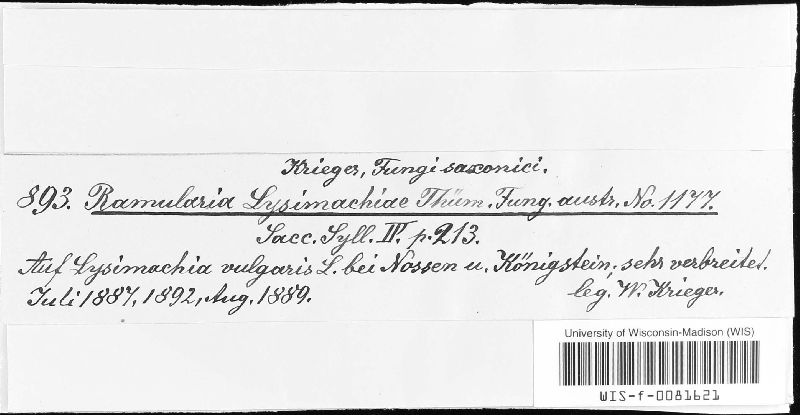 Krieger, Fungi saxonici.
893. Ramularia Lysimachiae Thüm. Fung. austr. No. 1177.
Sacc. Syll. IV. p. 213.
Auf Lysimachia vulgaris L. bei Nossen u. Königstein; sehr verbreitet.
Juli 1887, 1892, Aug. 1889.
leg. W. Krieger.
University of Wisconsin-Madison (WIS)
WIS-f-0081621